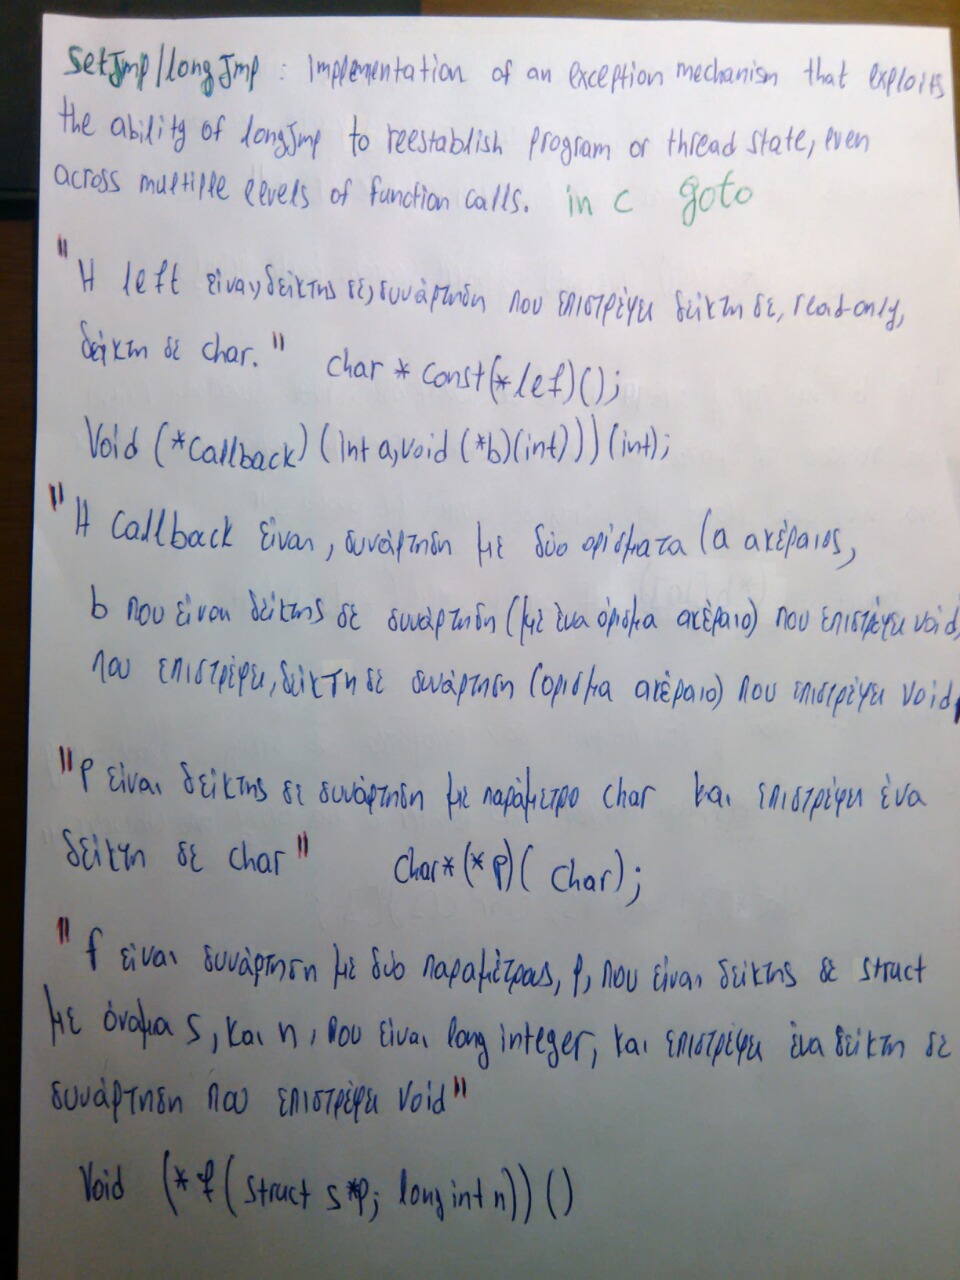 setJmp/longJmp : implementation of an exception mechanism that exploits
the ability of longJmp to reestablish program or thread state, even
across multiple levels of function calls. in c goto
"Η left είναι, δείκτης σε, συνάρτηση που επιστρέφει δείκτη σε, read-only,
δείκτη σε char." char * const(*lef)();
Void (*callback)(int a, void (*b)(int)))(int);
"Η callback είναι, συνάρτηση με δύο ορίσματα (a ακέραιος,
b που είναι δείκτης σε συνάρτηση (με ένα όρισμα ακέραιο) που επιστρέφει void,
που επιστρέφει, δείκτη σε συνάρτηση (όρισμα ακέραιο) που επιστρέφει void
"P είναι δείκτης σε συνάρτηση με παράμετρο char και επιστρέφει ένα
δείκτη σε char" char*(*p)( char);
"f είναι συνάρτηση με δύο παραμέτρους, p, που είναι δείκτης σε struct
με όνομα s, και n, που είναι long integer, και επιστρέφει ένα δείκτη σε
συνάρτηση που επιστρέφει void"
Void (*f(struct s*p; long int n))()